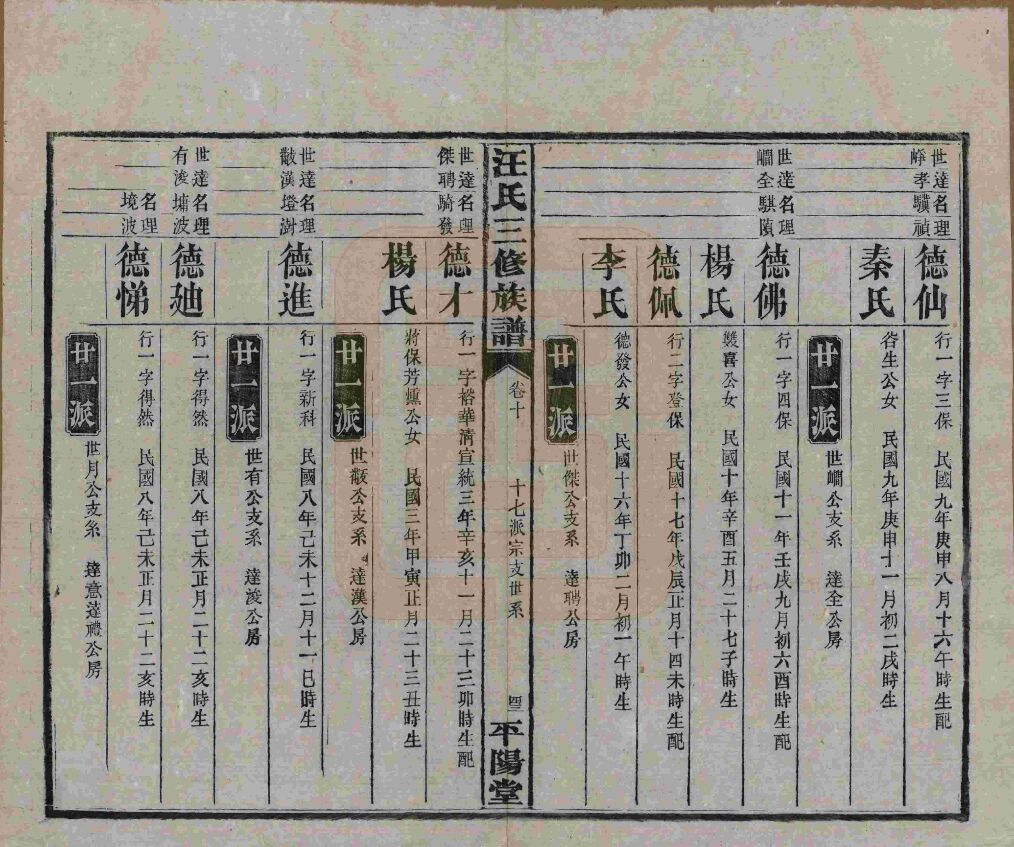 世達名理
崢孝驥禎
德仙
行一字三保 民國九年庚申八月十六午時生配
秦氏
咨生公女 民國九年庚申十一月初二戌時生
廿一派
世㠝公支系 達全公房
世達名理
㠝全騏隫
德佛
行一字四保 民國十一年壬戌九月初六酉時生配
楊氏
雙喜公女 民國十年辛酉五月二十七子時生
德佩
行二字登保 民國十七年戊辰二月十四未時生配
李氏
德發公女 民國十六年丁卯二月初一午時生
廿一派
世傑公支系 達聘公房
汪氏三修族譜
卷十
十七派宗支世系
平陽堂
世達名理
傑聘騎發
德才
行一字裕華清宣統三年辛亥十一月二十三卯時生配
楊氏
將保芳燻公女 民國三年甲寅正月二十三丑時生
廿一派
世散公支系 達漢公房
世達名理
散漢燈澍
德進
行一字新科 民國八年己未十二月十一巳時生
廿一派
世有公支系 達浚公房
世達名理
有浚墉波
德廸
行一字得然 民國八年己未正月二十二亥時生
名理
境波
德悌
行一字得然 民國八年己未正月二十二亥時生
廿一派
世月公支系 達意達禮公房